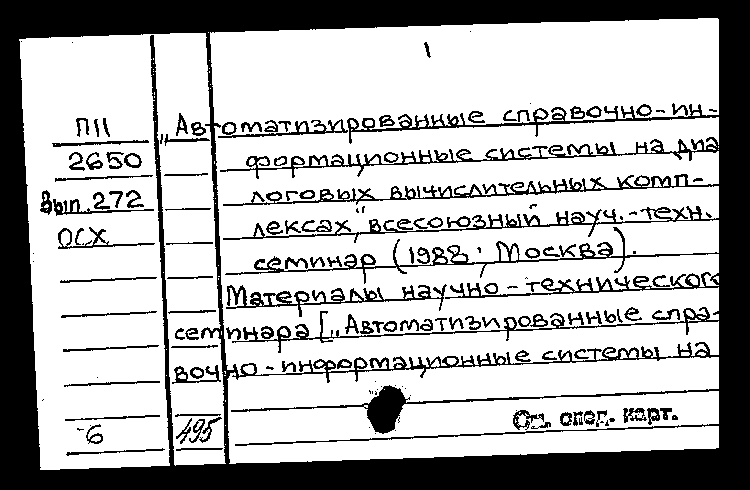 1
П11
2650
Вып.272
ОСХ
„Автоматизированные справочно-ин-
формационные системы на диа
логовых вычислительных комп-
лексах", всесоюзный науч.-техн.
семинар (1988; Москва).
Материалы научно-технического
семинара [„Автоматизированные спра-
вочно-информационные системы на
6
495
См. след. карт.